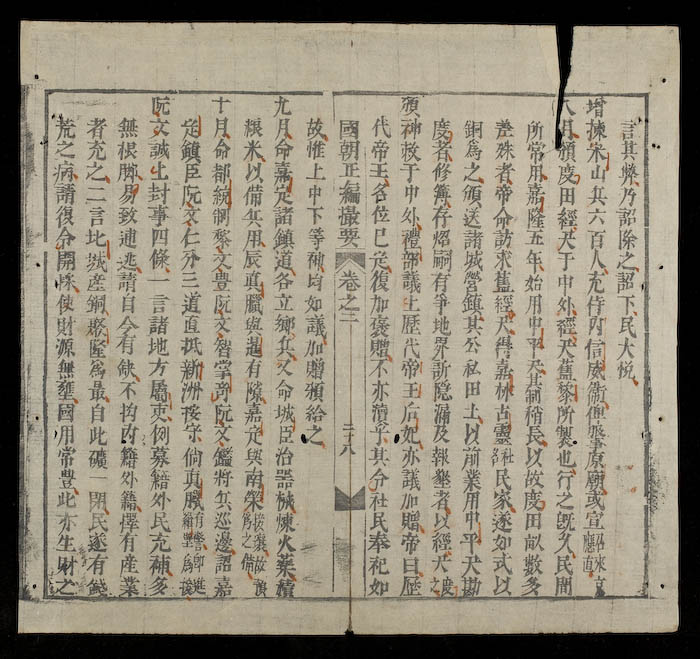 言其弊乃詔除之詔下民大悅
增揀宋山兵六百人充侍內信威衛俾肄原廟或宣
八月頒度田經尺于中外經尺舊黎所製也行之旣久民間
所常用嘉隆五年始用中平尺其制稍長以故度田畝數多
差殊者帝命訪求舊經尺得嘉林古靈社民家遂如式以
銅爲之頒送諸城營鎮其公私田土以前業用中平尺勘
度者修簿存炤嗣有爭地界訴隱漏及報墾者以經尺度之
頒神敕于中外禮部議上歷代帝王后妃亦議加贈帝曰歷
代帝王各位已定復加褒贈不亦瀆乎其分社民奉祀如
國朝正編撮要 卷之二 二十八
故惟上中下等神均如議加贈頒給之
九月命嘉定諸鎮道各立鄉兵又命城臣治器械煉火藥積
糧米以備兵用辰真臘與暹有隙嘉定與南榮接壤故預爲之備
十月命都統制黎文豊阮文智掌奇阮文鑑將兵巡邊詔嘉
定鎮臣阮文仁分三道直抵新洲按守倘真臘有警卽進
阮文誠上封事四條一言諸地方屬吏例募籍外民充補多
無根脚易致逋逃請自今有缺不拘內籍外籍擇有産業
者充之二言北城産銅聚隆爲最自此礦一閉民遂有錢
荒之病請復令開採使財源無壅國用常豊此亦生財之